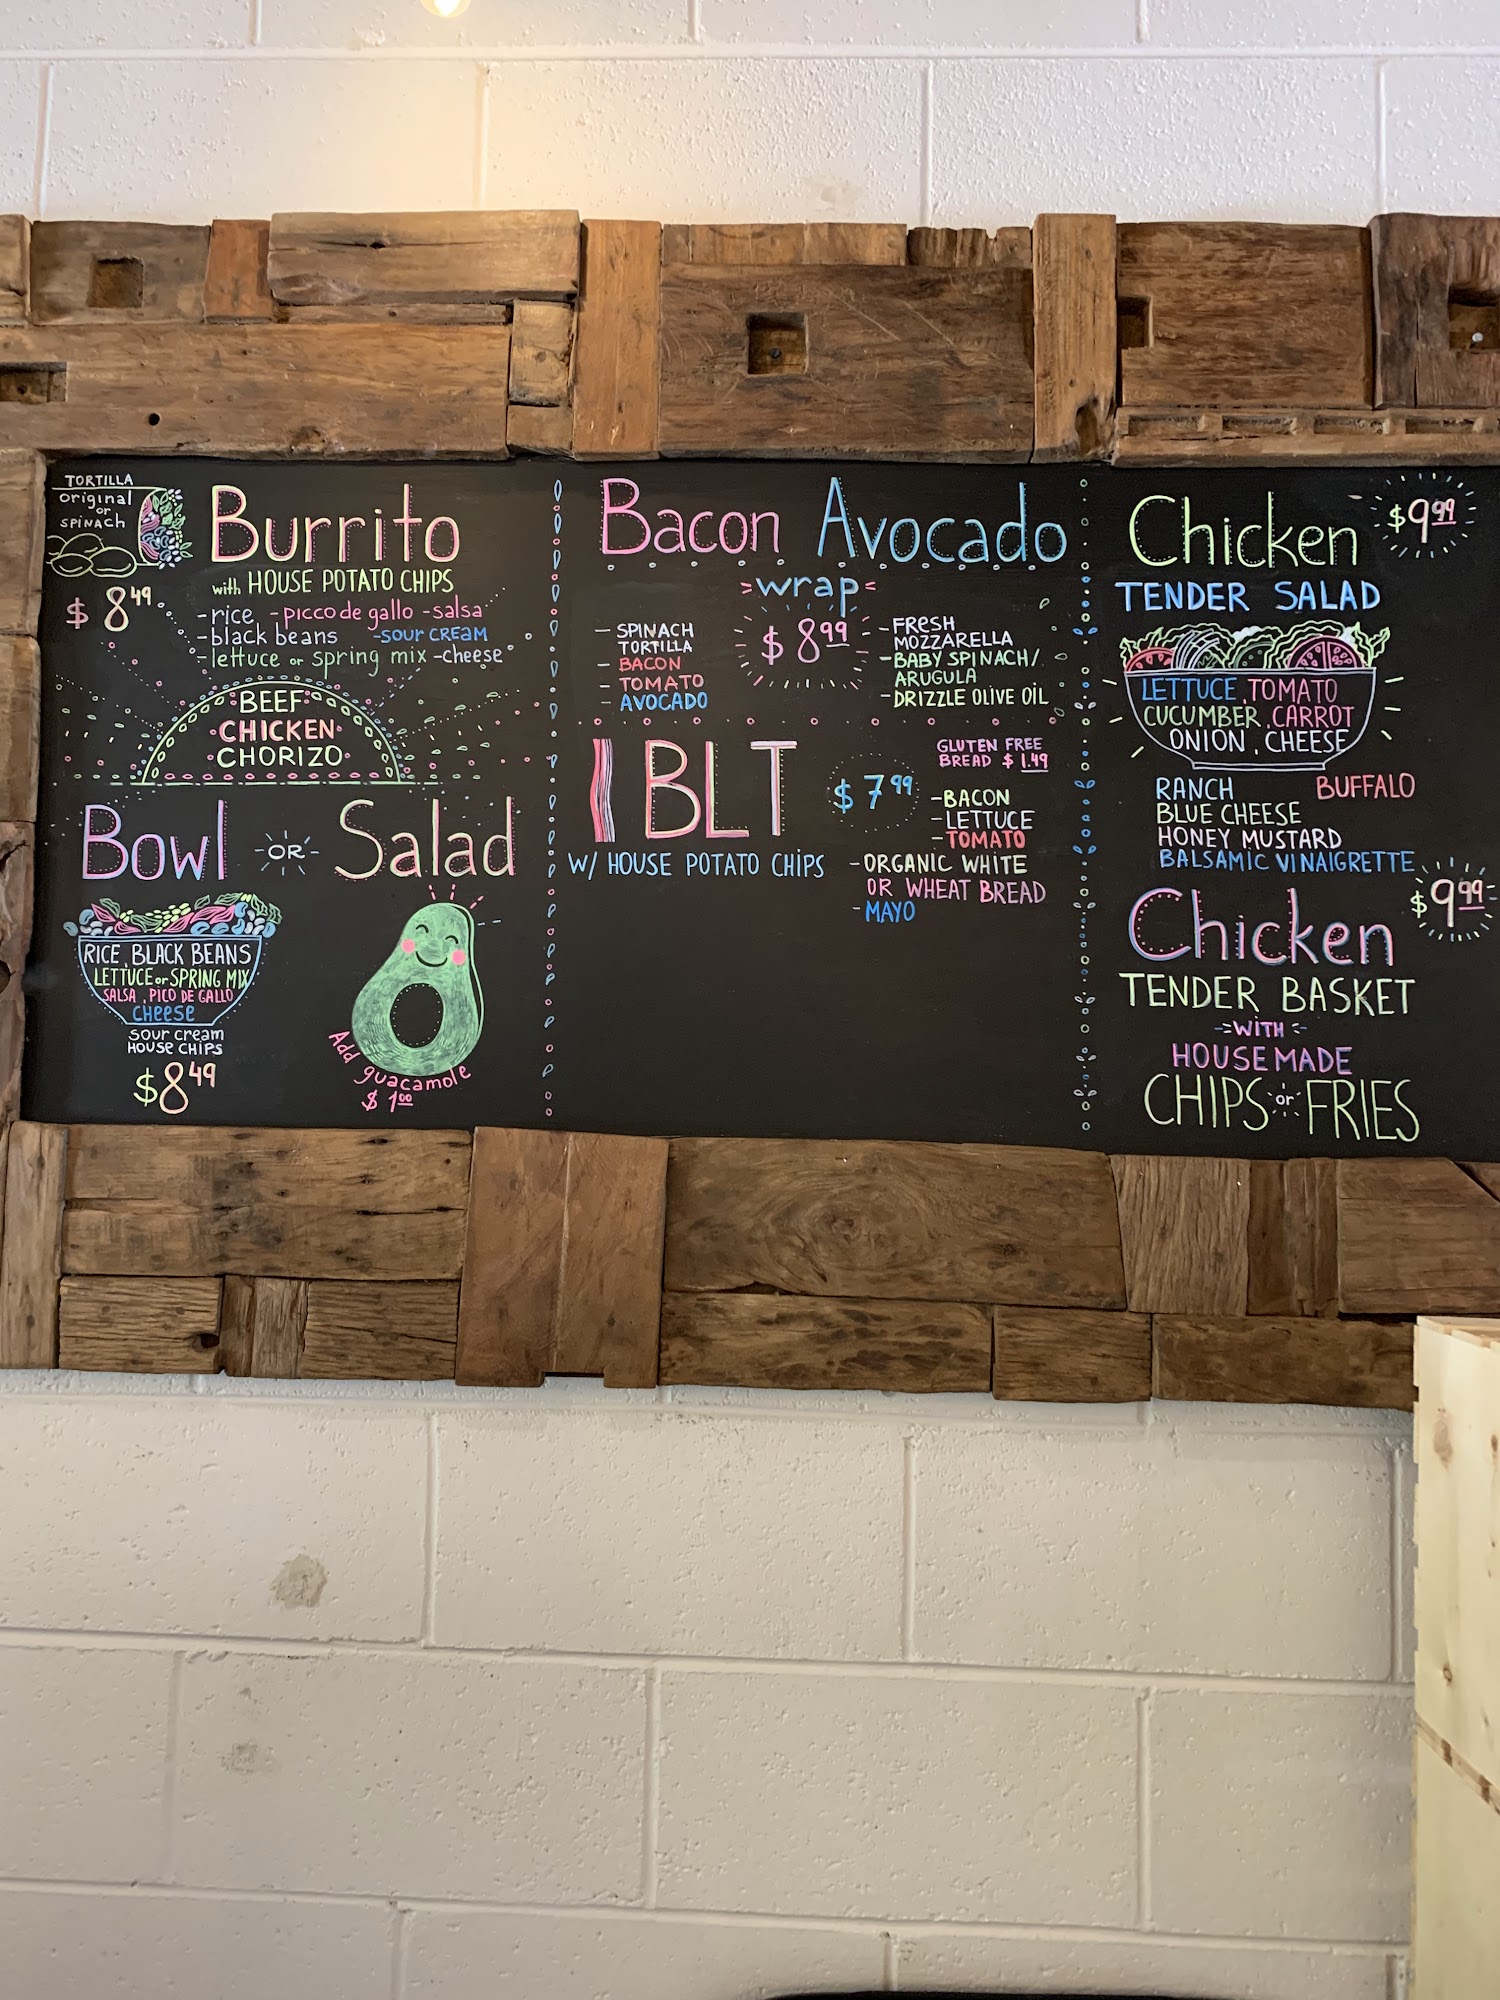 TORTILLA
original
or
SPINACH
Burrito
with HOUSE POTATO CHIPS
$ 8 49
-rice -picco de gallo -salsa
-black beans -SOUR CREAM
-lettuce or spring mix -cheese
BEEF
CHICKEN
CHORIZO
Bowl -OR- Salad
RICE, BLACK BEANS
LETTUCE or SPRING MIX
SALSA, PICO DE GALLO
CHeese
SOUR CREAM
HOUSE CHIPS
$8 49
Add guacamole
$ 1 00
Bacon Avocado
wrap
$ 8 99
- SPINACH
TORTILLA
- BACON
- TOMATO
- AVOCADO
- FRESH
MOZZARELLA
-BABY SPINACH/
ARUGULA
-DRIZZLE OLIVE OIL
BLT
$ 7 99
GLUTEN FREE
BREAD $ 1.49
W/ HOUSE POTATO CHIPS
-BACON
-LETTUCE
-TOMATO
-ORGANIC WHITE
OR WHEAT BREAD
-MAYO
Chicken $9 99
TENDER SALAD
LETTUCE, TOMATO
CUCUMBER, CARROT
ONION, CHEESE
RANCH BUFFALO
BLUE CHEESE
HONEY MUSTARD
BALSAMIC VINAIGRETTE
Chicken $9 99
TENDER BASKET
WITH
HOUSEMADE
CHIPS or FRIES